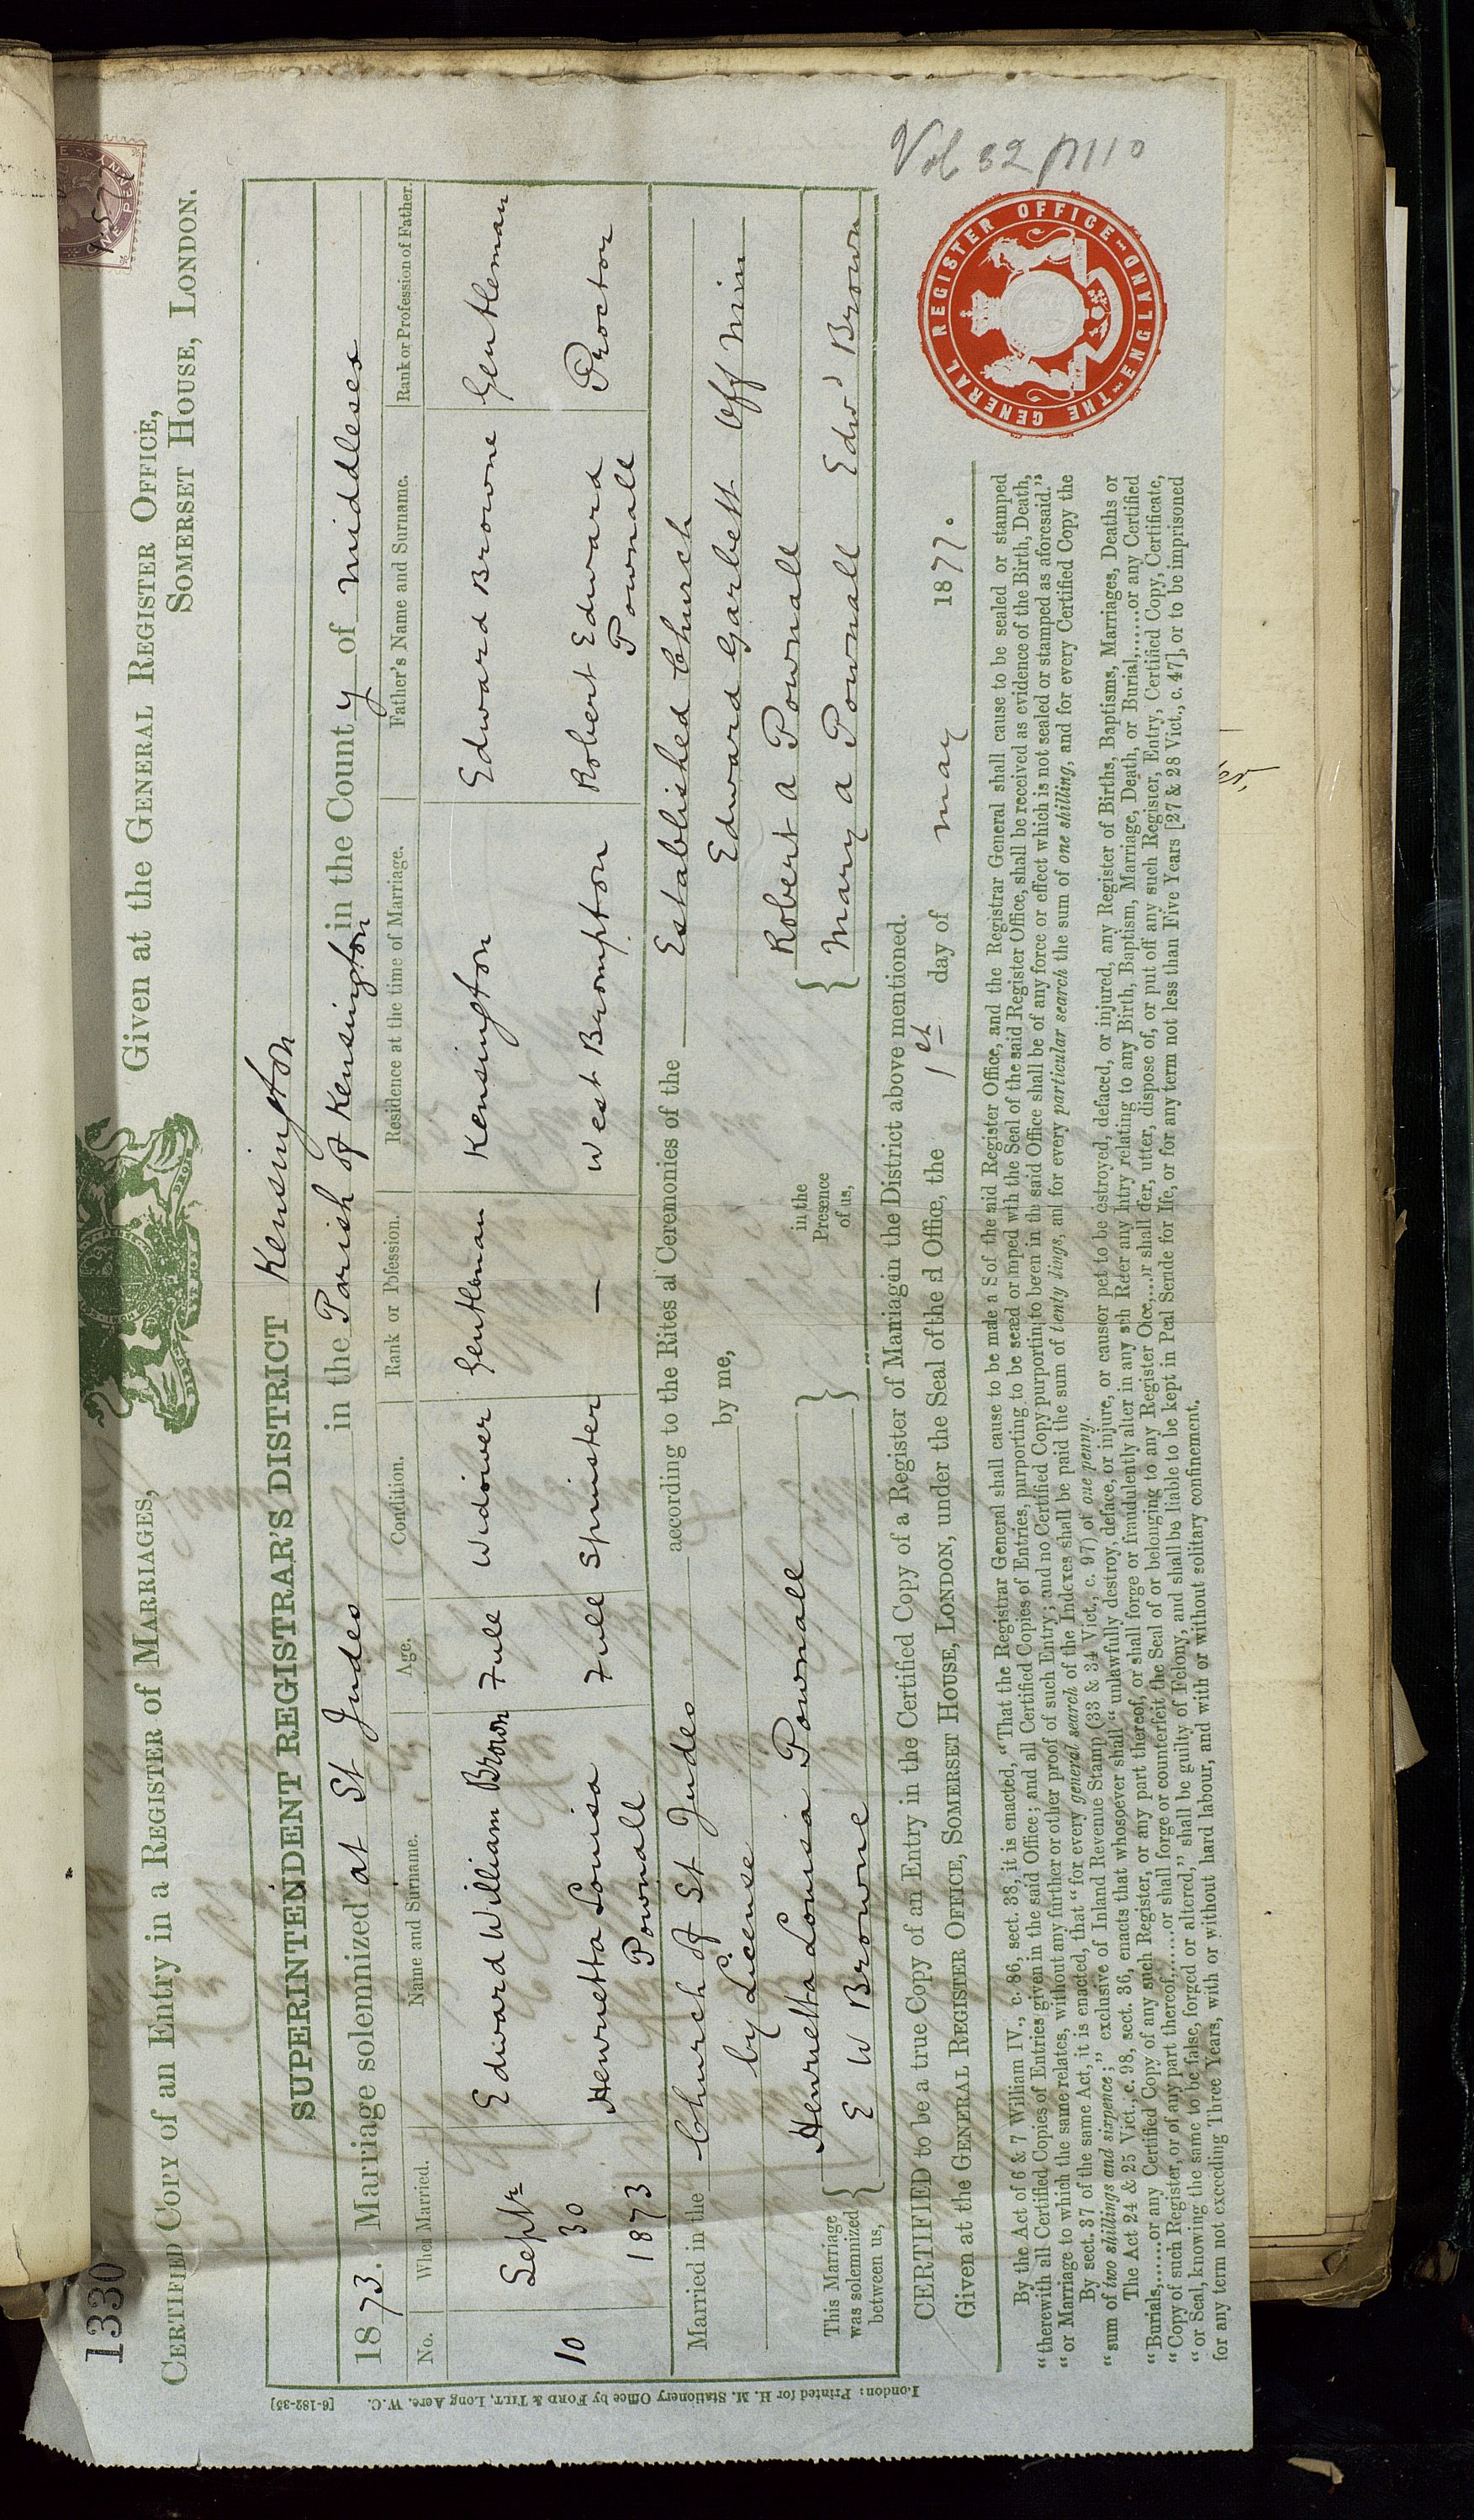 1330
CERTIFIED Copy of an Entry in a REGISTER of MARRIAGES,
Given at the GENERAL REGISTER OFFICE,
SOMERSET HOUSE, LONDON.
SUPERINTENDENT REGISTRAR'S DISTRICT Kensington
1873. Marriage solemnized at St Judes in the Parish of Kensington in the County of Middlesex
No. When Married. Name and Surname. Age. Condition. Rank or Profession. Residence at the time of Marriage. Father's Name and Surname. Rank or Profession of Father.
10 Septr 30 1873
Edward William Brown Full Widower Gentleman Kensington Edward Browne Gentleman
Henrietta Louisa Pownall Full Spinster — West Brompton Robert Edward Pownall Proctor
Married in the Church of St Judes according to the Rites and Ceremonies of the Established Church
by License by me, Edward Garbett Off Min
This Marriage was solemnized between us,
Henrietta Louisa Pownall
E W Browne
in the Presence of us,
Robert A Pownall
Mary A Pownall Edwd Brown
CERTIFIED to be a true Copy of an Entry in the Certified Copy of a Register of Marriages in the District above mentioned.
Given at the GENERAL REGISTER OFFICE, SOMERSET HOUSE, LONDON, under the Seal of the said Office, the 1st day of May 1877.
By the Act of 6 & 7 William IV., c. 86, sect. 38, it is enacted, "That the Registrar General shall cause to be made a Seal of the said Register Office, and the Registrar General shall cause to be sealed or stamped
"therewith all Certified Copies of Entries given in the said Office; and all Certified Copies of Entries, purporting to be sealed or stamped with the Seal of the said Register Office, shall be received as evidence of the Birth, Death,
"or Marriage to which the same relates, without any further or other proof of such Entry; and no Certified Copy purporting to be given in the said Office shall be of any force or effect which is not sealed or stamped as aforesaid."
By sect. 37 of the same Act, it is enacted, that "for every general search of the Indexes shall be paid the sum of twenty shillings, and for every particular search the sum of one shilling, and for every Certified Copy the
"sum of two shillings and sixpence;" exclusive of Inland Revenue Stamp (33 & 34 Vict., c. 97) of one penny.
The Act 24 & 25 Vict., c. 98, sect. 36, enacts that whosoever shall "unlawfully destroy, deface, or injure, or cause or permit to be destroyed, defaced, or injured, any Register of Births, Baptisms, Marriages, Deaths or
"Burials,......or any Certified Copy of any such Register, or any part thereof, or shall forge or fraudulently alter in any such Register any Entry relating to any Birth, Baptism, Marriage, Death, or Burial,......or any Certified
"Copy of such Register, or of any part thereof,......or shall forge or counterfeit the Seal of or belonging to any Register Office,....or shall offer, utter, dispose of, or put off any such Register, Entry, Certified Copy, Certificate,
"or Seal, knowing the same to be false, forged or altered," shall be guilty of Felony, and shall be liable to be kept in Penal Servitude for Life, or for any term not less than Five Years [27 & 28 Vict., c. 47], or to be imprisoned
for any term not exceeding Three Years, with or without hard labour, and with or without solitary confinement.
THE GENERAL REGISTER OFFICE ENGLAND
Vol 32 p110
London: Printed for H. M. Stationery Office by FORD & TILT, Long Acre, W.C. [6-182-35]